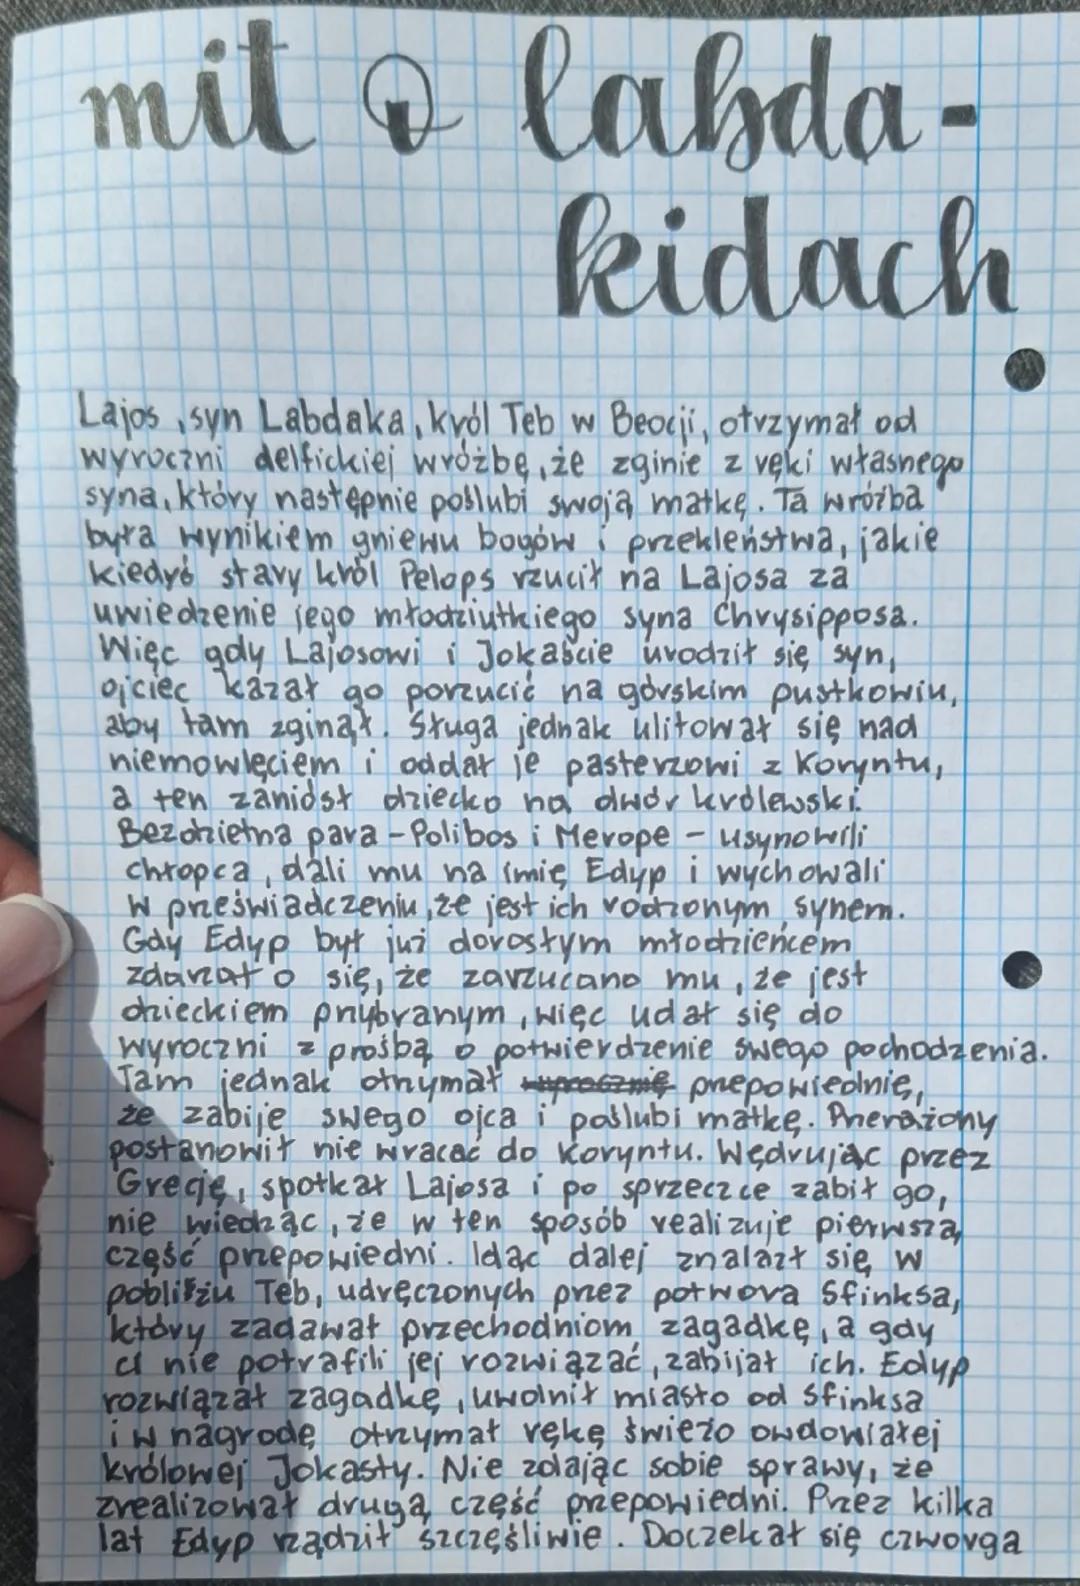 mit o labda-
kidach
Lajos, syn Labdaka, król Teb w Beocji, otrzymał od
wyroczni delfickiej wróżbę, że zginie z ręki własnego
syna, który następnie poślubi swoją matkę. Ta wróżba
była wynikiem gniewu bogów i przekleństwa, jakie
kiedyś stary król Pelops rzucił na Lajosa za
uwiedzenie jego młodziutkiego syna Chrysipposa.
Więc gdy Lajosowi i Jokaście urodził się syn,
ojciec kazał go porzucić na górskim pustkowiu,
aby tam zginął. Sługa jednak ulitował się nad
niemowlęciem i oddał je pasterzowi z Koryntu,
a ten zaniósł dziecko na dwór królewski.
Bezdzietna para - Polibos i Merope - usynowili
chłopca, dali mu na imię Edyp i wychowali
w przeświadczeniu, że jest ich rodzonym synem.
Gdy Edyp był już dorosłym młodzieńcem
zdarzało się, że zarzucano mu, że jest
dzieckiem przybranym, więc udał się do
wyroczni z prośbą o potwierdzenie swego pochodzenia.
Tam jednak otrzymał przepowiednię,
że zabije swego ojca i poślubi matkę. Przerażony
postanowił nie wracać do Koryntu. Wędrując przez
Grecję, spotkał Lajosa i po sprzeczce zabił go,
nie wiedząc, że w ten sposób realizuje pierwszą
część przepowiedni. Idąc dalej znalazł się w
pobliżu Teb, udręczonych przez potwora Sfinksa,
który zadawał przechodniom zagadkę, a gdy
ci nie potrafili jej rozwiązać, zabijał ich. Edyp
rozwiązał zagadkę, uwolnił miasto od Sfinksa
i w nagrodę otrzymał rękę świeżo owdowiałej
królowej Jokasty. Nie zdając sobie sprawy, że
zrealizował drugą część przepowiedni. Przez kilka
lat Edyp rządził szczęśliwie. Doczekał się czworga